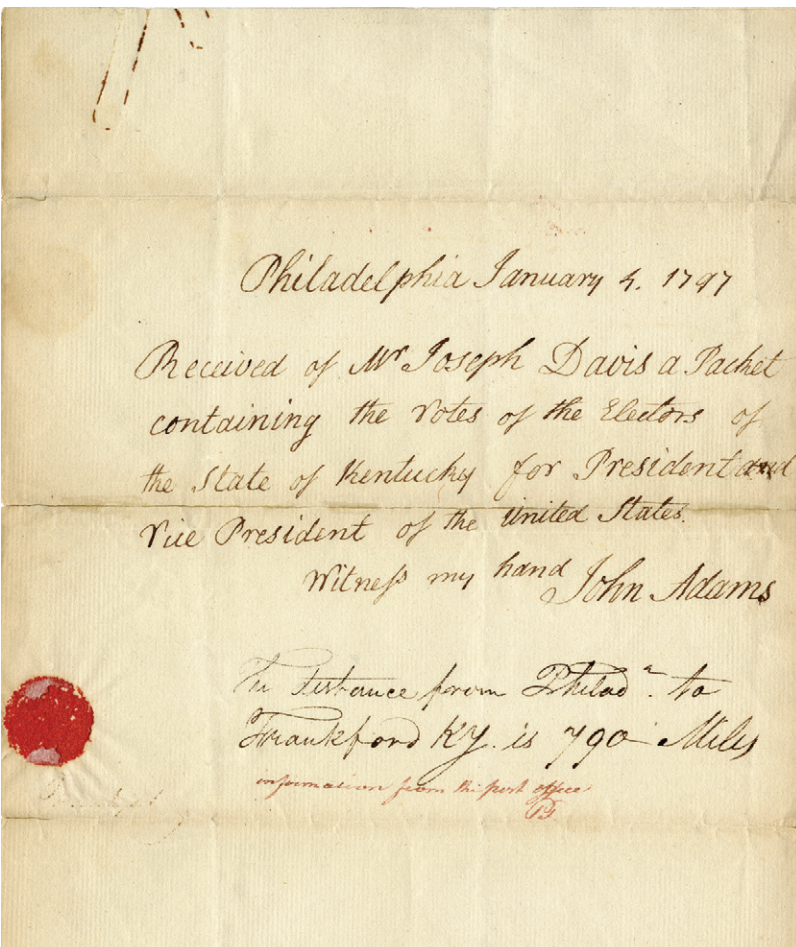 Philadelphia January 4. 1797
Received of Mr Joseph Davis a Packet
containing the Votes of the Electors of
the State of Kentucky for President and
Vice President of the United States.
Witness my hand John Adams
The Distance from Philada. to
Frankford KY. is 790 Miles
information from the post office